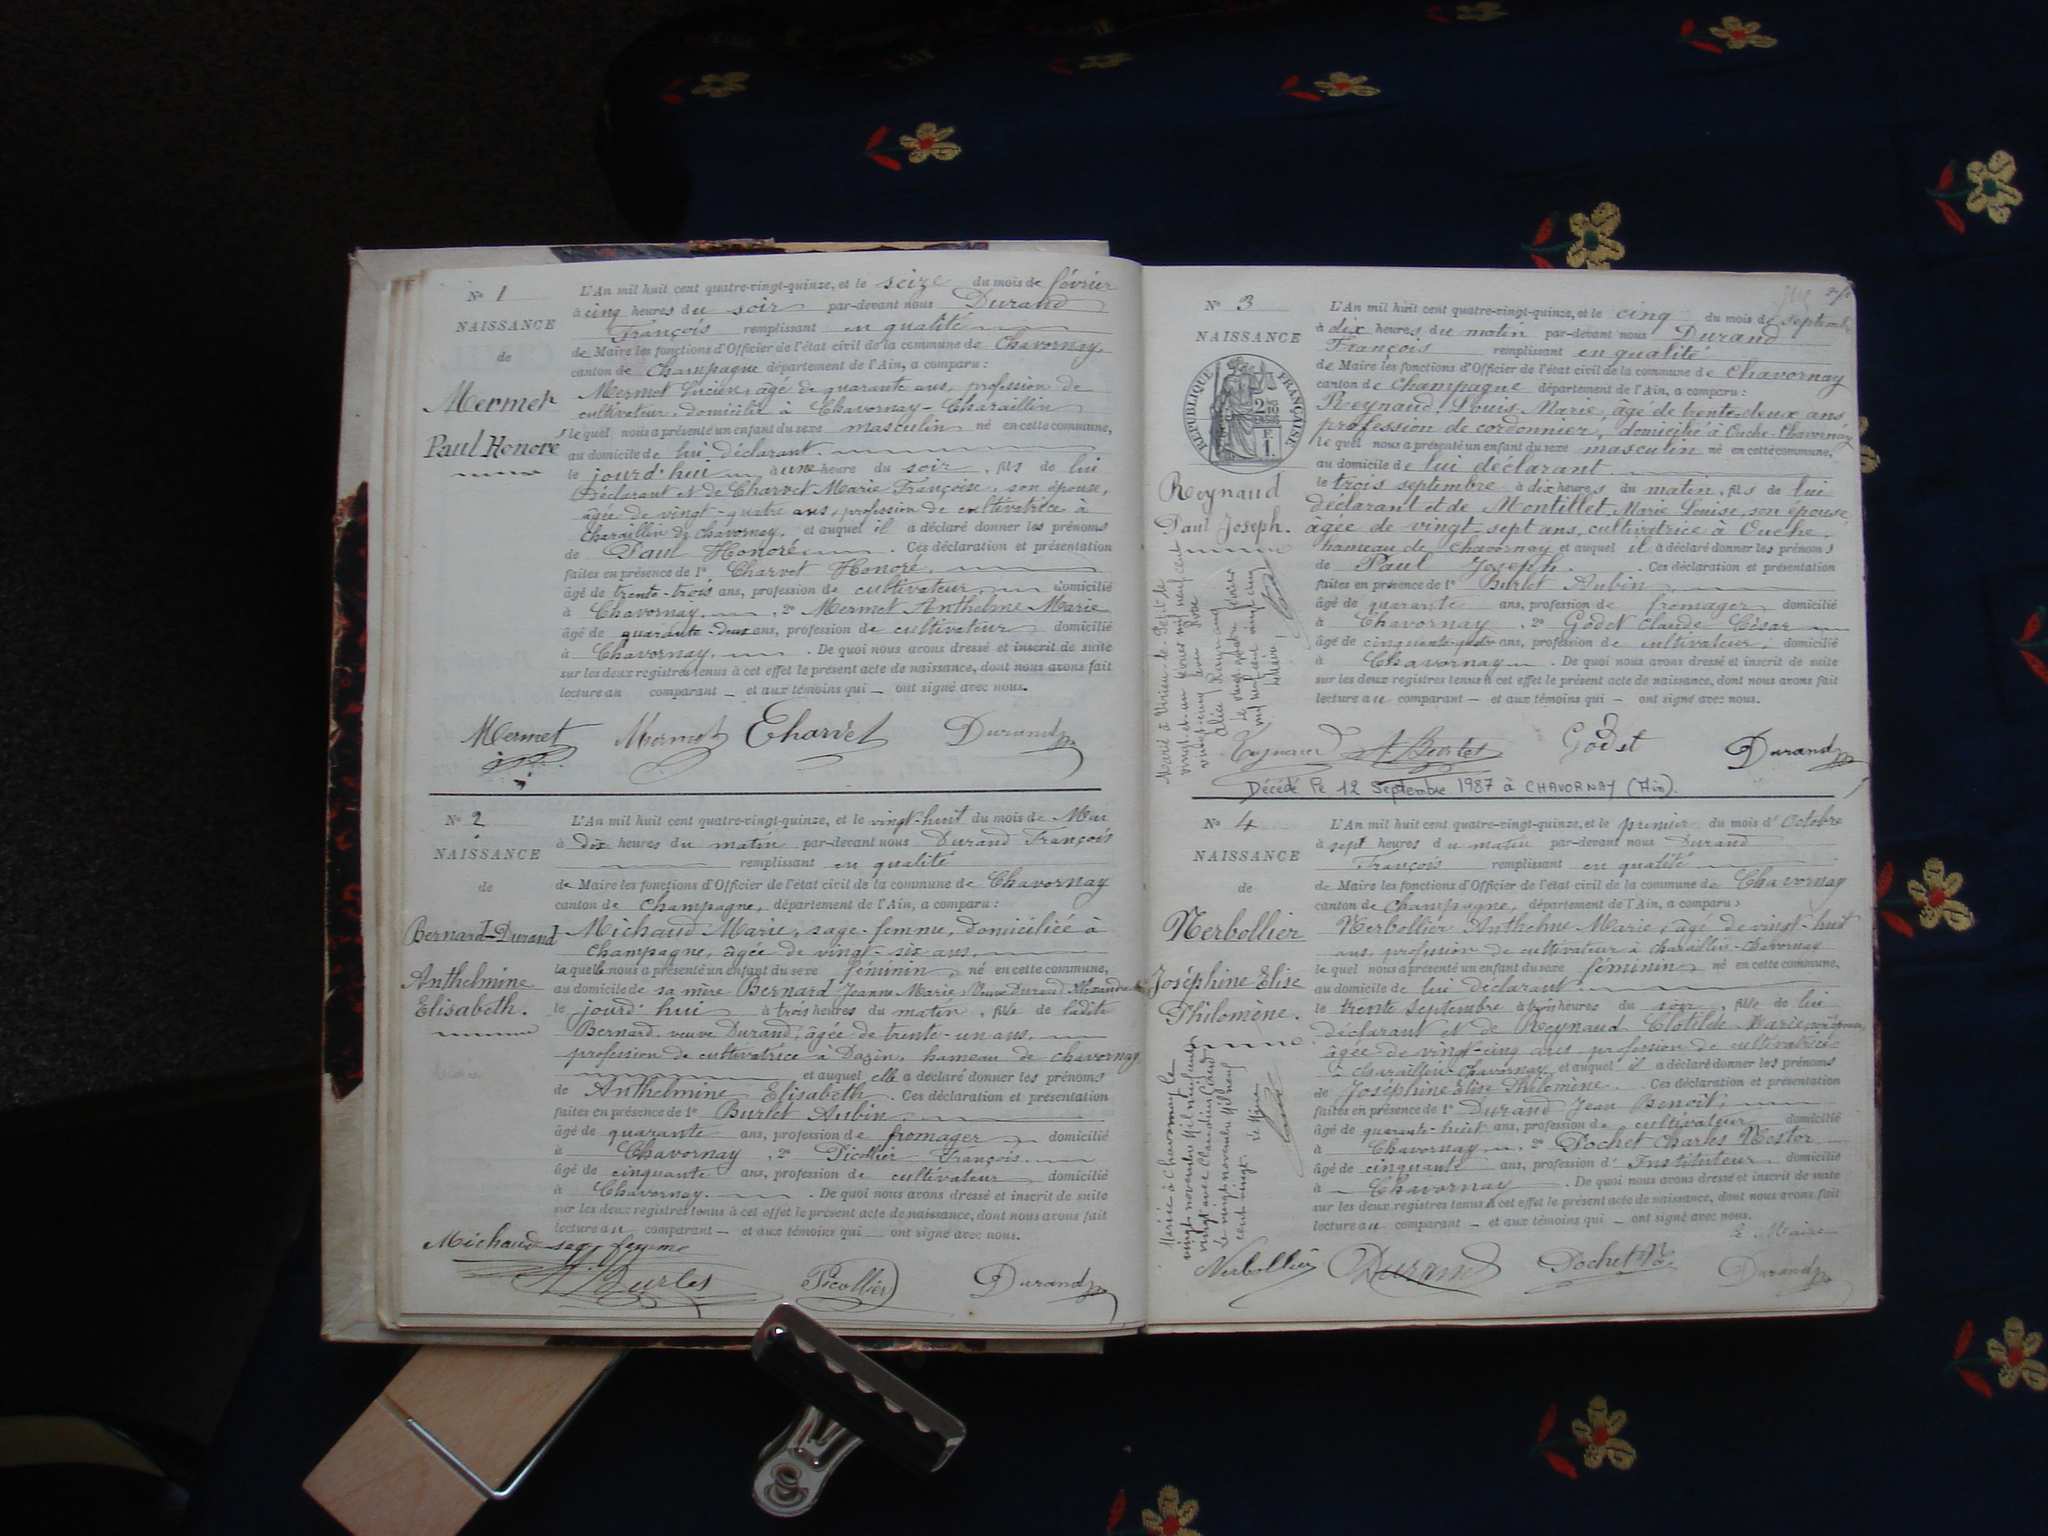 N° 1
NAISSANCE
de
Mermet
Paul Honoré
L'An mil huit cent quatre-vingt-quinze, et le seize du mois de février
à cinq heures du soir par-devant nous Durand
François remplissant en qualité
de Maire les fonctions d'Officier de l'état civil de la commune de Chavornay,
canton de Champagne département de l'Ain, a comparu :
Mermet Lucien, âgé de quarante ans, profession de
cultivateur, domicilié à Chavornay-Charaillin
lequel nous a présenté un enfant du sexe masculin né en cette commune,
au domicile de lui déclarant.
le jourd'hui à une heure du soir, fils de lui
Déclarant et de Charvet Marie Françoise, son épouse,
âgée de vingt-quatre ans, profession de cultivatrice à
Charaillin de Chavornay, et auquel il a déclaré donner les prénoms
de Paul Honoré. Ces déclaration et présentation
faites en présence de 1° Charvet Honoré,
âgé de trente-trois ans, profession de cultivateur domicilié
à Chavornay, 2° Mermet Anthelme Marie
âgé de quarante-deux ans, profession de cultivateur domicilié
à Chavornay. De quoi nous avons dressé et inscrit de suite
sur les deux registres tenus à cet effet le présent acte de naissance, dont nous avons fait
lecture au comparant et aux témoins qui ont signé avec nous.
Mermet Mermet Charvet Durand
N° 2
NAISSANCE
de
Bernard-Durand
Anthelmine
Elisabeth.
L'An mil huit cent quatre-vingt-quinze, et le vingt-huit du mois de Mai
à dix heures du matin par-devant nous Durand François
remplissant en qualité
de Maire les fonctions d'Officier de l'état civil de la commune de Chavornay
canton de Champagne, département de l'Ain, a comparu :
Michaud Marie, sage-femme, domiciliée à
Champagne, âgée de vingt-six ans,
laquelle nous a présenté un enfant du sexe féminin né en cette commune,
au domicile de sa mère Bernard Jeanne Marie, Veuve Durand Alexandre
le jourd'hui à trois heures du matin, fille de ladite
Bernard, veuve Durand, âgée de trente-un ans,
profession de cultivatrice à Dazin, hameau de Chavornay
et auquel elle a déclaré donner les prénoms
de Anthelmine Elisabeth. Ces déclaration et présentation
faites en présence de 1° Burlet Aubin,
âgé de quarante ans, profession de fromager domicilié
à Chavornay, 2° Picollier François
âgé de cinquante ans, profession de cultivateur domicilié
à Chavornay. De quoi nous avons dressé et inscrit de suite
sur les deux registres tenus à cet effet le présent acte de naissance, dont nous avons fait
lecture au comparant et aux témoins qui ont signé avec nous.
Michaud sage femme
A. Burlet Picollier Durand
N° 3
NAISSANCE
RÉPUBLIQUE FRANÇAISE
Reynaud
Paul Joseph.
L'An mil huit cent quatre-vingt-quinze, et le cinq du mois de septembre
à dix heures du matin par-devant nous Durand
François remplissant en qualité
de Maire les fonctions d'Officier de l'état civil de la commune de Chavornay
canton de Champagne département de l'Ain, a comparu :
Reynaud Louis-Marie, âgé de trente-deux ans
profession de cordonnier, domicilié à Ouche-Chavornay
lequel nous a présenté un enfant du sexe masculin né en cette commune,
au domicile de lui déclarant
le trois septembre à dix heures du matin, fils de lui
déclarant et de Montillet Marie Louise, son épouse,
âgée de vingt-sept ans, cultivatrice à Ouche,
hameau de Chavornay et auquel il a déclaré donner les prénoms
de Paul Joseph. Ces déclaration et présentation
faites en présence de 1° Burlet Aubin
âgé de quarante ans, profession de fromager domicilié
à Chavornay, 2° Godet Claude César
âgé de cinquante-quatre ans, profession de cultivateur, domicilié
à Chavornay. De quoi nous avons dressé et inscrit de suite
sur les deux registres tenus à cet effet le présent acte de naissance, dont nous avons fait
lecture au comparant et aux témoins qui ont signé avec nous.
Marié à Virieu-le-Petit le
vingt-et-un février mil neuf cent
vingt-cinq avec
Alice Reynaud
Le vingt quatre février
mil neuf cent vingt cinq
Reynaud A. Burlet Godet Durand
Décédé le 12 Septembre 1987 à CHAVORNAY (Ain).
N° 4
NAISSANCE
de
Nerbollier
Joséphine Elise
Philomène.
L'An mil huit cent quatre-vingt-quinze, et le premier du mois d'Octobre
à sept heures du matin par-devant nous Durand
François remplissant en qualité
de Maire les fonctions d'Officier de l'état civil de la commune de Chavornay
canton de Champagne, département de l'Ain, a comparu :
Nerbollier Anthelme Marie, âgé de vingt-huit
ans, profession de cultivateur à Charaillin-Chavornay
lequel nous a présenté un enfant du sexe féminin né en cette commune,
au domicile de lui déclarant
le trente septembre à trois heures du soir, fille de lui
déclarant et de Reynaud Clotilde Marie, son épouse,
âgée de vingt-cinq ans, profession de cultivatrice
à Charaillin-Chavornay et auquel il a déclaré donner les prénoms
de Joséphine Elise Philomène. Ces déclaration et présentation
faites en présence de 1° Durand Jean Benoît,
âgé de quarante-huit ans, profession de cultivateur domicilié
à Chavornay, 2° Pochet Charles Nestor
âgé de cinquante ans, profession d'Instituteur domicilié
à Chavornay. De quoi nous avons dressé et inscrit de suite
sur les deux registres tenus à cet effet le présent acte de naissance, dont nous avons fait
lecture au comparant et aux témoins qui ont signé avec nous.
Le Maire
Mariée à Chavornay le
vingt novembre Mil neuf cent
vingt avec Claudius
Le vingt novembre Mil neuf
cent vingt. Le Maire
Nerbollier Durand Pochet Durand